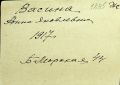 Васина
Анна Яковлевна
1917г.
Б. Морская 44